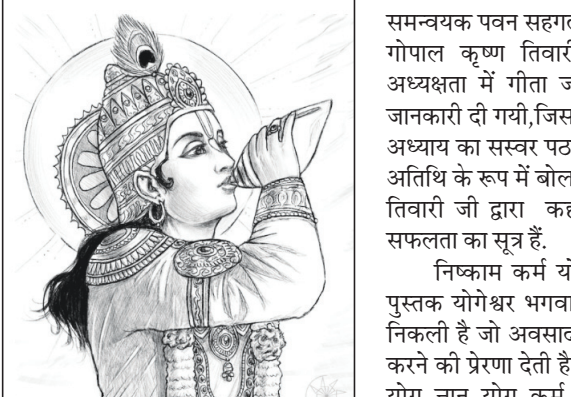 समन्वयक पवन सहगत
गोपाल कृष्ण तिवारी
अध्यक्षता में गीता ज
जानकारी दी गयी,जिस
अध्याय का सस्वर पठ
अतिथि के रूप में बोल
तिवारी जी द्वारा कह
सफलता का सूत्र हैं.
निष्काम कर्म यो
पुस्तक योगेश्वर भगवा
निकली है जो अवसाद
करने की प्रेरणा देती है
योग ज्ञान योग कर्म